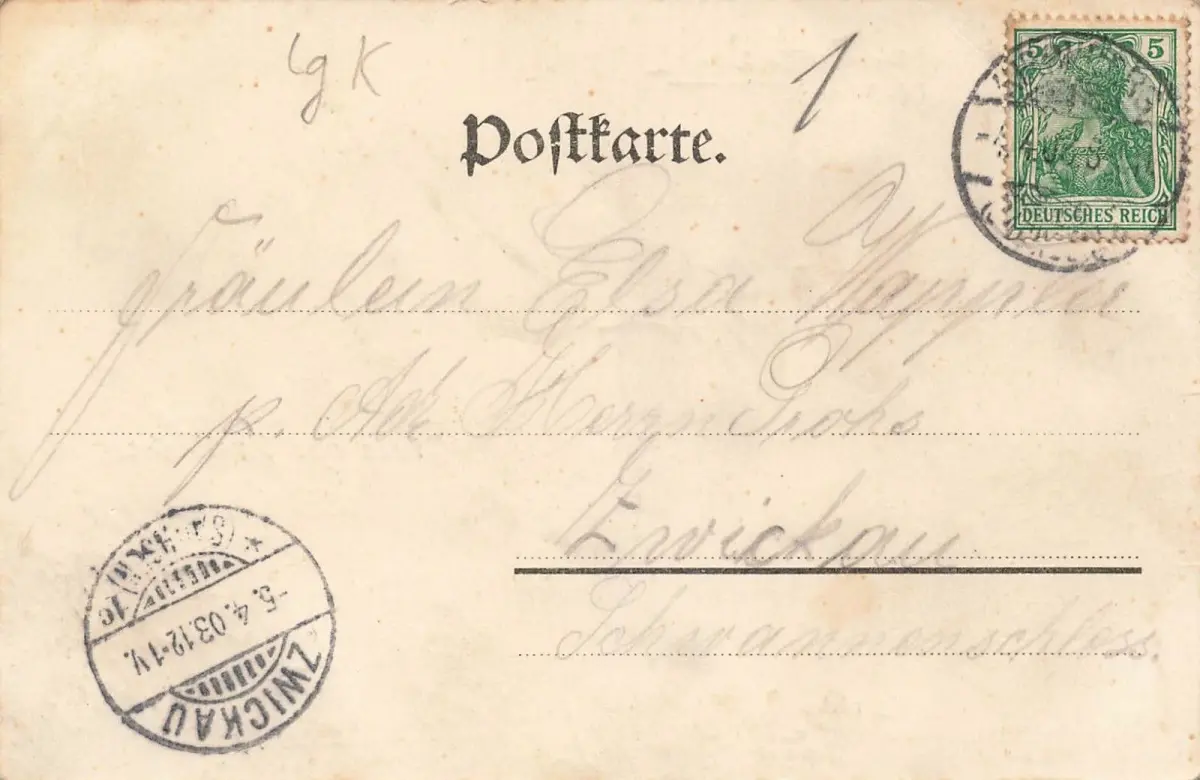 lg K
1
Postkarte.
5 5
DEUTSCHES REICH
Fräulein Elsa Wappler
p. Adr. Herrn Grohs
Zwickau
Schwanenschloss.
ZWICKAU
-5.4.03.12-1V.
(SACHSEN) 1c